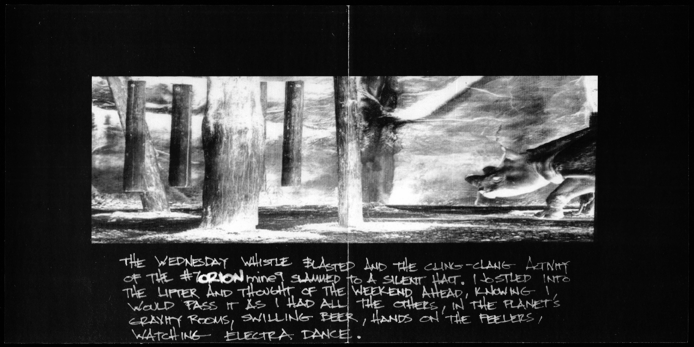 THE WEDNESDAY WHISTLE BLASTED AND THE CLING-CLANG ACTIVITY
OF THE #7 ORION mine SLAMMED TO A SILENT HALT. I JOSTLED INTO
THE LIFTER AND THOUGHT OF THE WEEKEND AHEAD, KNOWING I
WOULD PASS IT AS I HAD ALL THE OTHERS, IN THE PLANET'S
GRAVITY ROOMS, SWILLING BEER, HANDS ON THE FEELERS,
WATCHING ELECTRA DANCE.